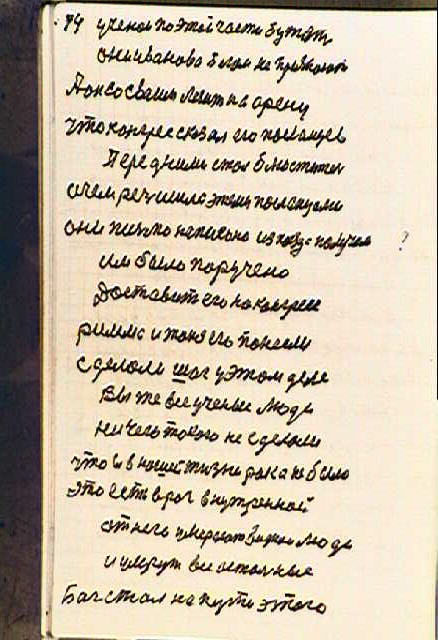 74 ученои поэтой части будет
они иванова богом не признают
А он со своим лезит на арену
что конгрес сказал его посланцев
Перед ними стал блюститель
о чем реч ишла з этими посланцами
они письмо написано из когда получил ?
им было поручено
доставит его на конгресе
римма и тоня его понесли
сделали шаг у этом деле
Вы же все ученые люди
ничего такого не сделали
что б в нашей жизни рака не было
это есть враг внутренной
от него умерают видные люди
и умрут все остальные
Бог стал на пути этого